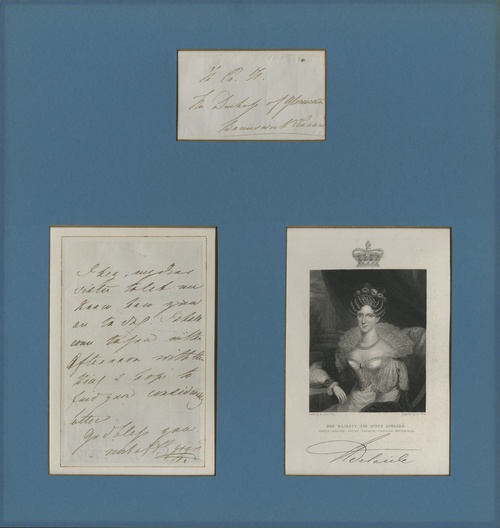 H. R. H.
The Duchess of Gloucester
I beg, my dear
sister to let me
know how you
are to day. I shall
come to you in the
afternoon with the
King & hope to
find you considerably
better.
God bless you
HER MAJESTY THE QUEEN ADELAIDE.
Adelaide